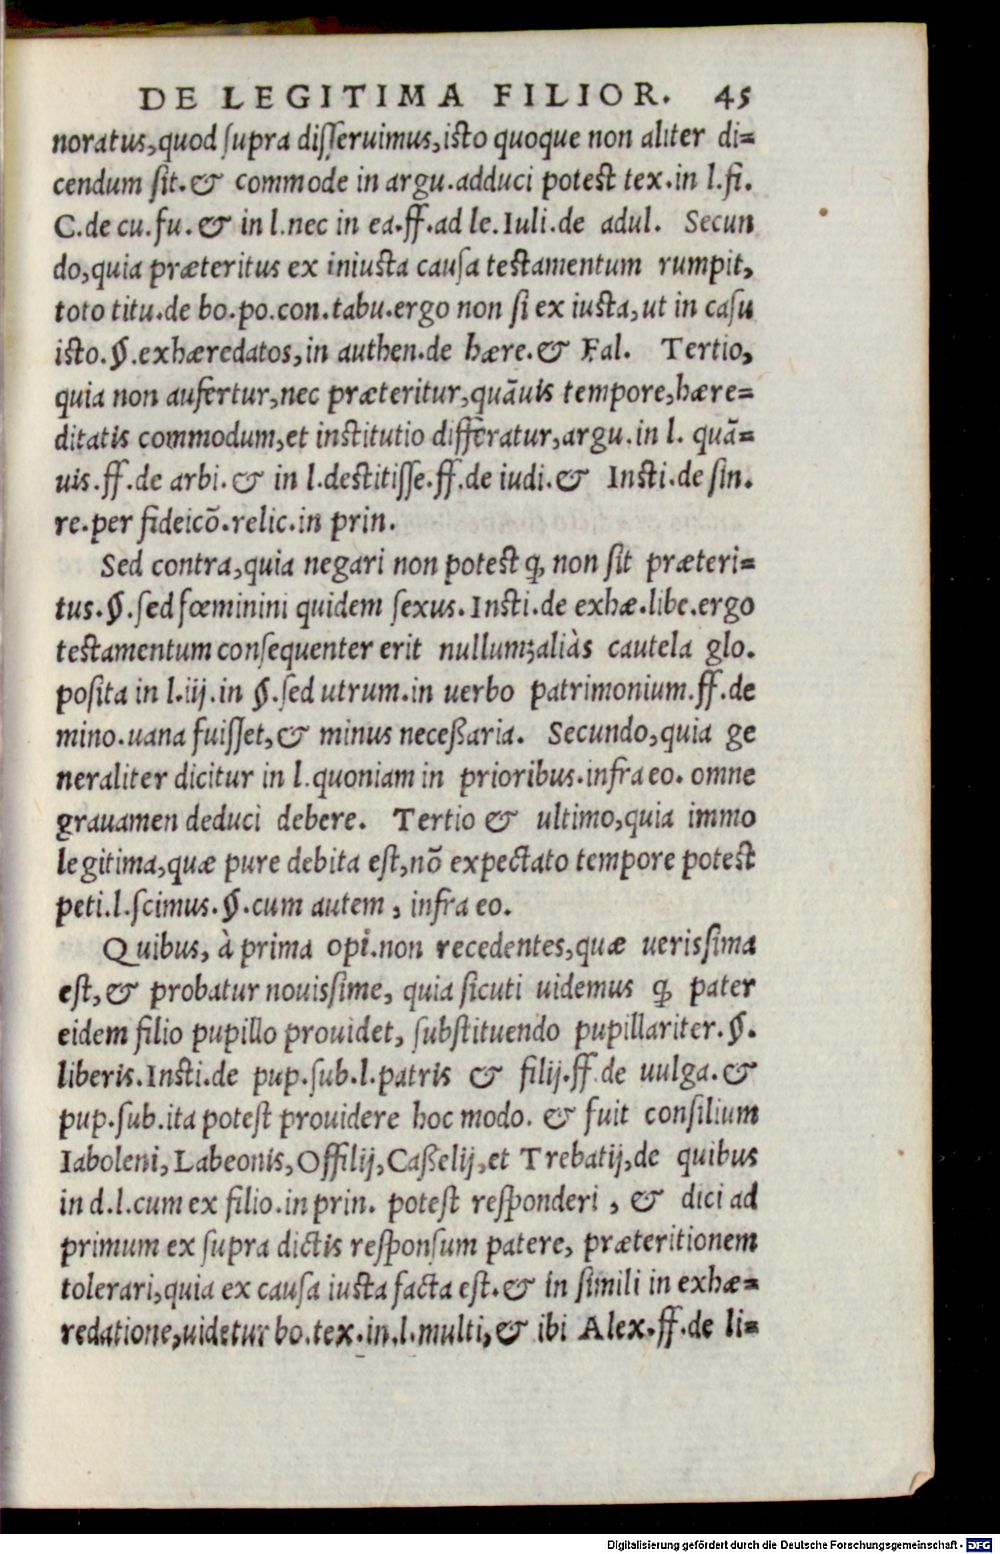 DE LEGITIMA FILIOR. 45
noratus,quod supra disseruimus,isto quoque non aliter di=
cendum sit.& commode in argu.adduci potest tex.in l.fi.
C.de cu.fu.& in l.nec in ea.ff.ad le.Iuli.de adul. Secun
do,quia præteritus ex iniusta causa testamentum rumpit,
toto titu.de bo.po.con.tabu.ergo non si ex iusta,ut in casu
isto.§.exhæredatos,in authen.de hære.& Fal. Tertio,
quia non aufertur,nec præteritur,quāuis tempore,hære=
ditatis commodum,et institutio differatur,argu.in l. quā=
uis.ff.de arbi.& in l.destitisse.ff.de iudi.& Insti.de sin.
re.per fideicō.relic.in prin.
Sed contra,quia negari non potest ꝙ non sit præteri=
tus.§.sed fœminini quidem sexus.Insti.de exhæ.libe.ergo
testamentum consequenter erit nullum;aliàs cautela glo.
posita in l.iij.in §.sed utrum.in uerbo patrimonium.ff.de
mino.uana fuisset,& minus neceßaria. Secundo,quia ge
neraliter dicitur in l.quoniam in prioribus.infra eo. omne
grauamen deduci debere. Tertio & ultimo,quia immo
legitima,quæ pure debita est,nō expectato tempore potest
peti.l.scimus.§.cum autem , infra eo.
Quibus, à prima opi.non recedentes,quæ uerissima
est,& probatur nouissime, quia sicuti uidemus ꝙ pater
eidem filio pupillo prouidet, substituendo pupillariter.§.
liberis.Insti.de pup.sub.l.patris & filij.ff.de uulga.&
pup.sub.ita potest prouidere hoc modo. & fuit consilium
Iaboleni,Labeonis,Offilij,Caßelij,et Trebatij,de quibus
in d.l.cum ex filio.in prin. potest responderi , & dici ad
primum ex supra dictis responsum patere, præteritionem
tolerari,quia ex causa iusta facta est.& in simili in exhæ=
redatione,uidetur bo.tex.in.l.multi,& ibi Alex.ff.de li=
Digitalisierung gefördert durch die Deutsche Forschungsgemeinschaft - DFG